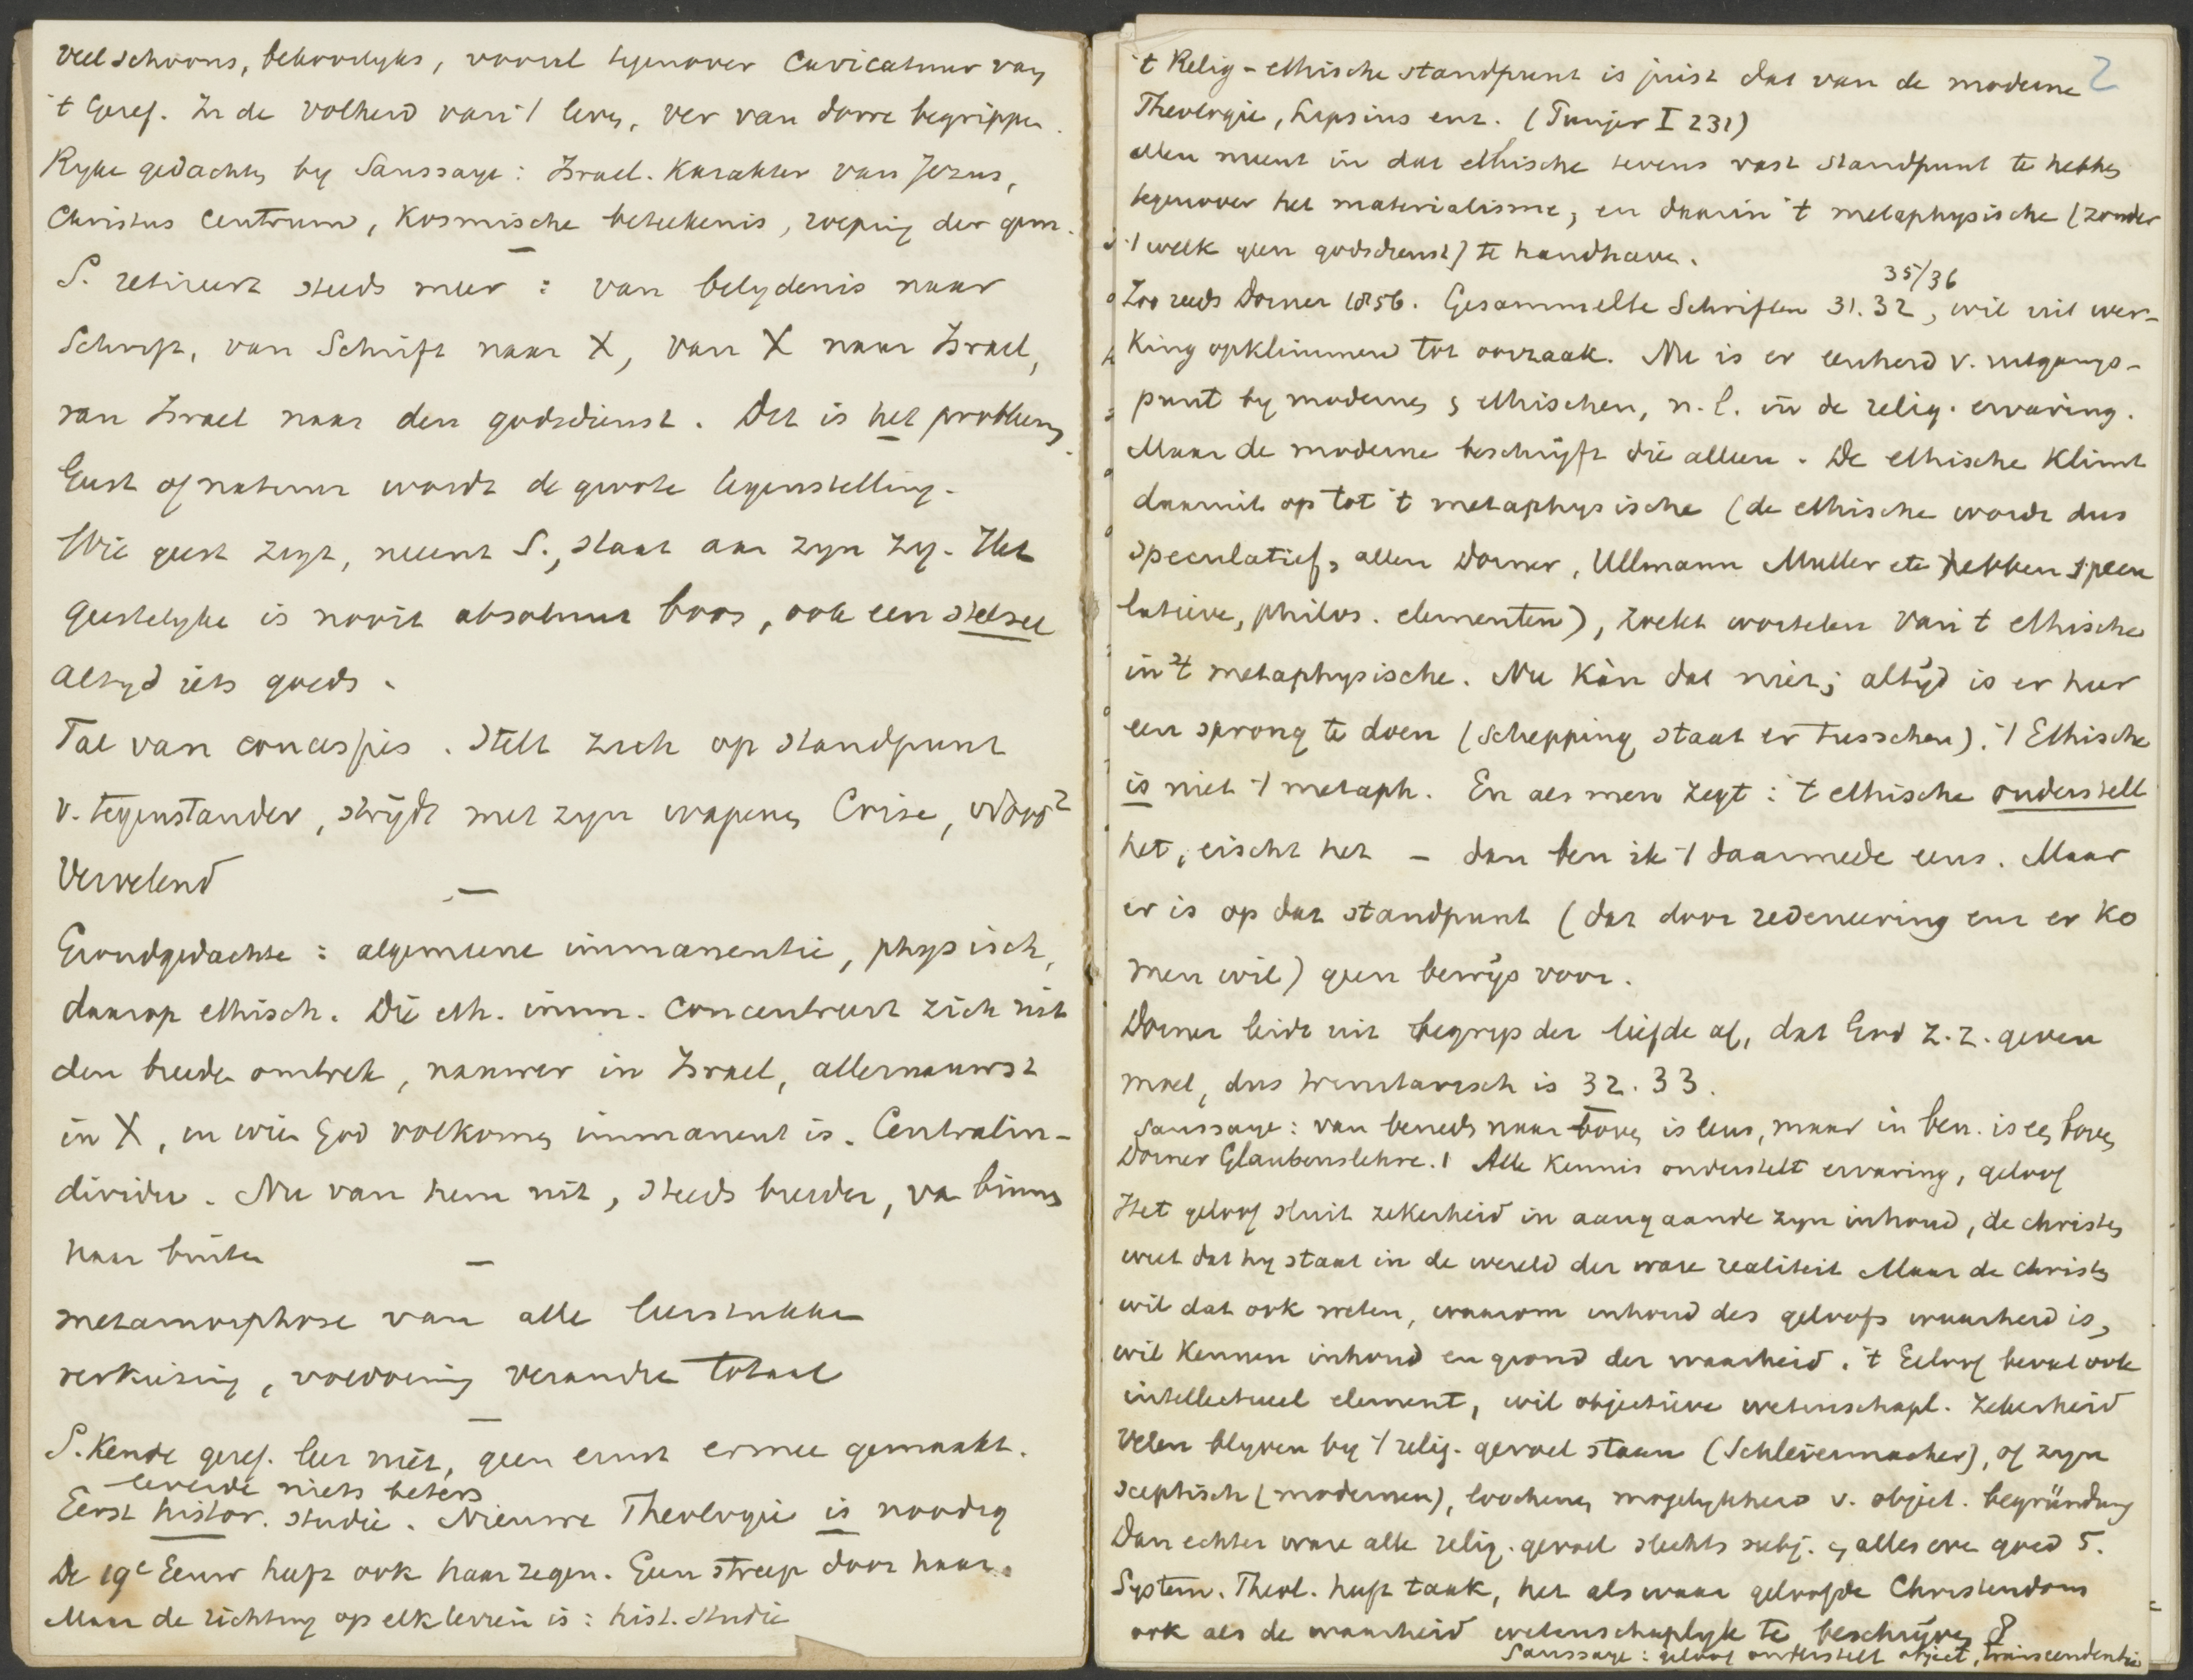 veel schoons, bekoorlyks, vooral tegenover caricatuur van
't Geref. In de volheid van 't leven, ver van dorre begrippen.
Ryke gedachten by Saussaye: Israel. Karakter van Jezus,
Christus centrum, Kosmische beteekenis, roeping der gem.
S. retireert steeds meer: van belydenis naar
Schrift, van Schrift naar X, van X naar Israel,
van Israel naar den godsdienst. Dit is het probleem.
Geest of natuur wordt de groote tegenstelling.
Wie geest zegt, meent S., staat aan zyn zy. Het
geestelyke is nooit absoluut boos, ook een stelsel
altyd iets goeds.
Tal van concessies. Stelt zich op standpunt
v. tegenstander, strydt met zyn wapenen Crise, wordt
Vervelend
Grondgedachte: algemeene immanentie, physisch,
daarop ethisch. Die eth. imm. concentreert zich uit
den breeden omtrek, nauwer in Israel, allernauwst
in X, in wien God volkomen immanent is. Centralin-
dividu. Nu van hem uit, steeds breeder, van binnen
naar buiten
metamorphose van alle leerstukken
verkiezing, voldoening verandre totaal
S. kende geref. leer niet, geen ernst ermee gemaakt.
leverde niets beters
Eerst histor. studie. Nieuwe Theologie is noodig
De 19e Eeuw heeft ook haar zegen. Geen streep door haar.
Maar de richting op elk terrein is: hist. studie
2
't Relig-ethische standpunt is juist dat van de moderne
Theologie, Lipsius enz. (Punjer I 231)
Men meent in dat ethische tevens vast standpunt te hebben
tegenover het materialisme, en daarin 't metaphysische (zonder
't welk geen godsdienst) te handhaven.
35/36
Zoo reeds Dorner 1856. Gesammelte Schriften 31.32, wil uit wer-
king opklimmen tot oorzaak. Nu is er eenheid v. uitgangs-
punt by modernen & ethischen, n.l. in de relig. ervaring.
Maar de moderne beschrijft die alleen. De ethische klimt
daaruit op tot 't metaphysische (de ethische wordt dus
speculatief, allen Dorner, Ullmann Muller etc hebben specu
latieve, philos. elementen), zoekt wortelen van 't ethische
in 't metaphysische. Nu kàn dat niet; altijd is er hier
een sprong te doen (schepping staat er tusschen). 't Ethische
is niet 't metaph. En als men zegt: 't ethische onderstelt
het, eischt het – dan ben ik 't daarmede eens. Maar
er is op dat standpunt (dat door redeneering enz er ko
men wil) geen bewijs voor.
Dorner leidt uit begrip der liefde af, dat God z. z. geven
moet, dus trinitarisch is 32. 33.
Saussaye: van beneden naar boven is leus, maar in ben. is een boven
Dorner Glaubenslehre. 1 Alle kennis onderstelt ervaring, geloof
Het geloof sluit zekerheid in aangaande zyn inhoud, de christen
weet dat hy staat in de wereld der ware realiteit Maar de christen
wil dat ook weten, waarom inhoud des geloofs waarheid is,
wil kennen inhoud en grond der waarheid. 't Geloof bevat ook
intellectueel element, wil objectieve wetenschapl. zekerheid
Velen blyven by 't relig. gevoel staan (Schleiermacher), of zyn
sceptisch (modernen), loochenen mogelykheid v. object. begründung
Dan echter ware alle relig. gevoel slechts subj. & alles even goed 5.
System. Theol. heeft taak, het als waar geloofde Christendom
ook als de waarheid wetenschaplyk te beschrijven 8
Saussaye: geloof onderstelt object, transcendentie